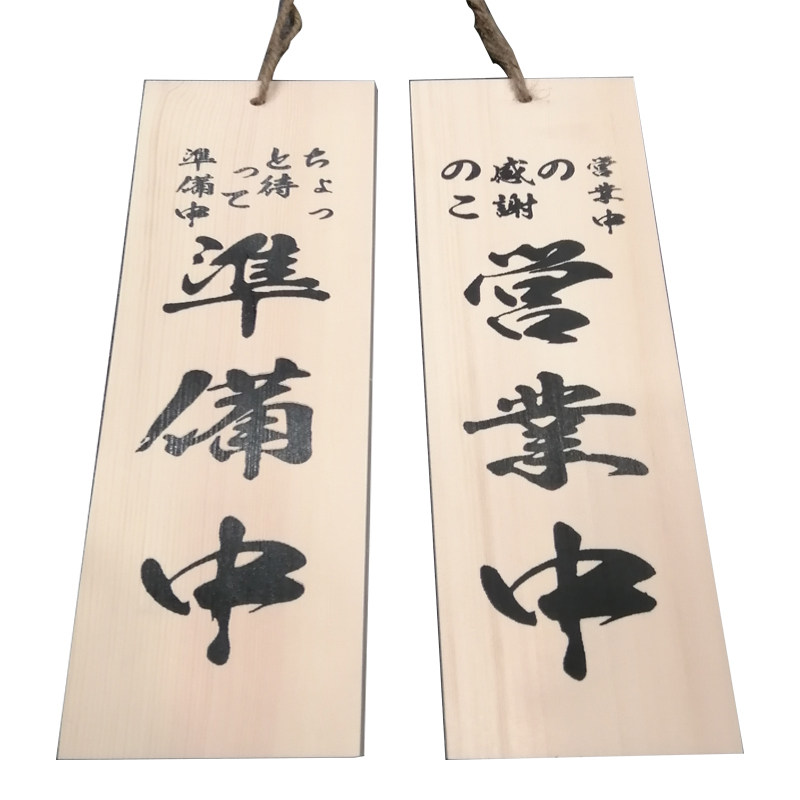 ちょっ
と待
って
準備中
準備中
営業中
の
感謝
のこ
営業中